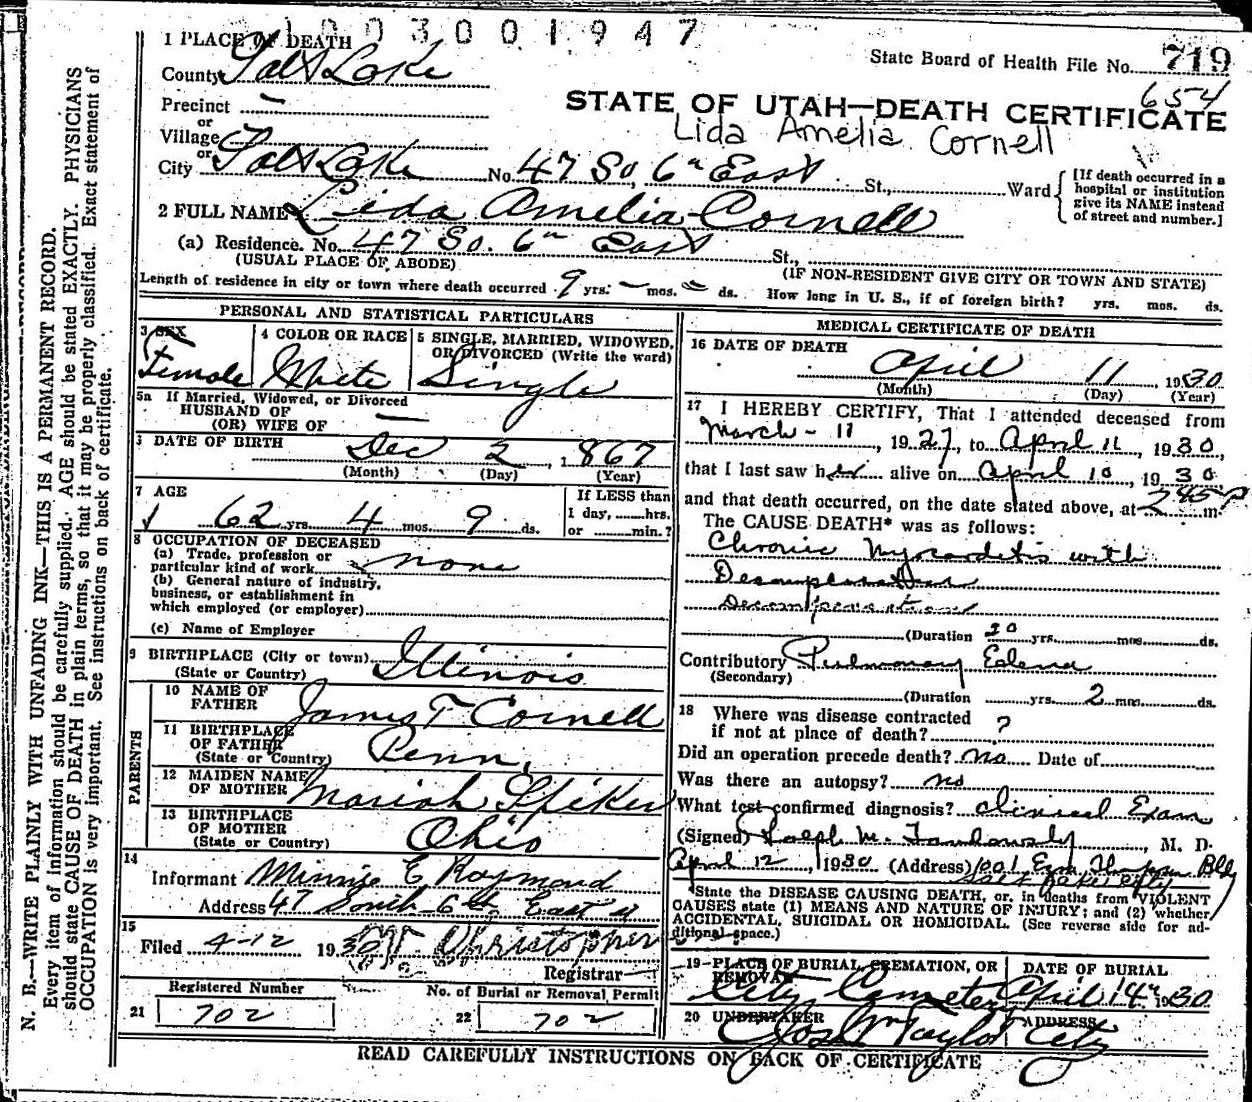 1003001947
1 PLACE OF DEATH
State Board of Health File No. 719
County Salt Lake
654
Precinct —
STATE OF UTAH—DEATH CERTIFICATE
or
Village
Lida Amelia Cornell
or
City Salt Lake No. 47 So, 6th East St., Ward
[If death occurred in a hospital or institution give its NAME instead of street and number.]
2 FULL NAME Lida Amelia Cornell
(a) Residence. No. 47 So. 6th East St.,
(USUAL PLACE OF ABODE) (IF NON-RESIDENT GIVE CITY OR TOWN AND STATE)
Length of residence in city or town where death occurred 9 yrs. — mos. — ds. How long in U. S., if of foreign birth? yrs. mos. ds.
PERSONAL AND STATISTICAL PARTICULARS
3 SEX
Female
4 COLOR OR RACE
White
5 SINGLE, MARRIED, WIDOWED,
OR DIVORCED (Write the word)
Single
5a If Married, Widowed, or Divorced
HUSBAND OF
(OR) WIFE OF —
DATE OF BIRTH Dec 2, 1867
(Month) (Day) (Year)
7 AGE
62 yrs. 4 mos. 9 ds.
If LESS than
1 day, hrs.
or min.?
8 OCCUPATION OF DECEASED
(a) Trade, profession or
particular kind of work none
(b) General nature of industry,
business, or establishment in
which employed (or employer)
(c) Name of Employer
9 BIRTHPLACE (City or town) Illinois
(State or Country)
PARENTS
10 NAME OF
FATHER James T Cornell
11 BIRTHPLACE
OF FATHER Penn,
(State or Country)
12 MAIDEN NAME
OF MOTHER Mariah Spiker
13 BIRTHPLACE
OF MOTHER Ohio
(State or Country)
14
Informant Minnie E Raymond
Address 47 South 6th East st
15
Filed 4-12 1930 Christopher
Registrar
Registered Number
21 702
No. of Burial or Removal Permit
22 702
MEDICAL CERTIFICATE OF DEATH
16 DATE OF DEATH
April 11, 1930
(Month) (Day) (Year)
17 I HEREBY CERTIFY, That I attended deceased from
March - 11, 1927, to April 11, 1930,
that I last saw her alive on April 10, 1930
and that death occurred, on the date stated above, at 245 P m.
The CAUSE DEATH* was as follows:
Chronic Myocarditis with
Decompensation
Decompensation
(Duration 20 yrs. mos. ds.
Contributory Pulmonary Edema
(Secondary)
(Duration yrs. 2 mos. ds.
18 Where was disease contracted
if not at place of death? ?
Did an operation precede death? no Date of
Was there an autopsy? no
What test confirmed diagnosis? Clinical Exam
(Signed) M. D.
April 12, 1930 (Address) 1001 Bldg
Salt Lake City
*State the DISEASE CAUSING DEATH, or, in deaths from VIOLENT
CAUSES state (1) MEANS AND NATURE OF INJURY; and (2) whether
ACCIDENTAL, SUICIDAL OR HOMICIDAL. (See reverse side for ad-
ditional space.)
19 PLACE OF BURIAL, CREMATION, OR
REMOVAL
City Cemetery
DATE OF BURIAL
April 14th 1930
20 UNDERTAKER
Jos Wm Taylor
ADDRESS
City
READ CAREFULLY INSTRUCTIONS ON BACK OF CERTIFICATE
N. B.—WRITE PLAINLY WITH UNFADING INK—THIS IS A PERMANENT RECORD.
Every item of information should be carefully supplied. AGE should be stated EXACTLY. PHYSICIANS
should state CAUSE OF DEATH in plain terms, so that it may be properly classified. Exact statement of
OCCUPATION is very important. See instructions on back of certificate.